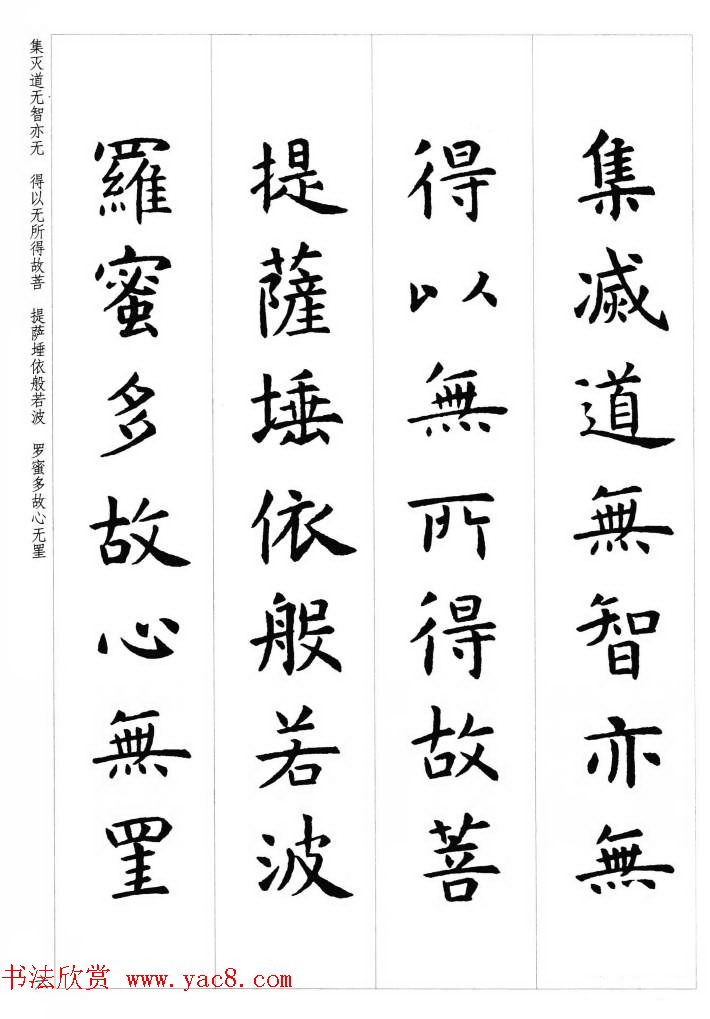 集滅道無智亦無
得以無所得故菩
提薩埵依般若波
羅蜜多故心無罣
集灭道无智亦无 得以无所得故菩 提萨埵依般若波 罗蜜多故心无罣
书法欣赏 www.yac8.com